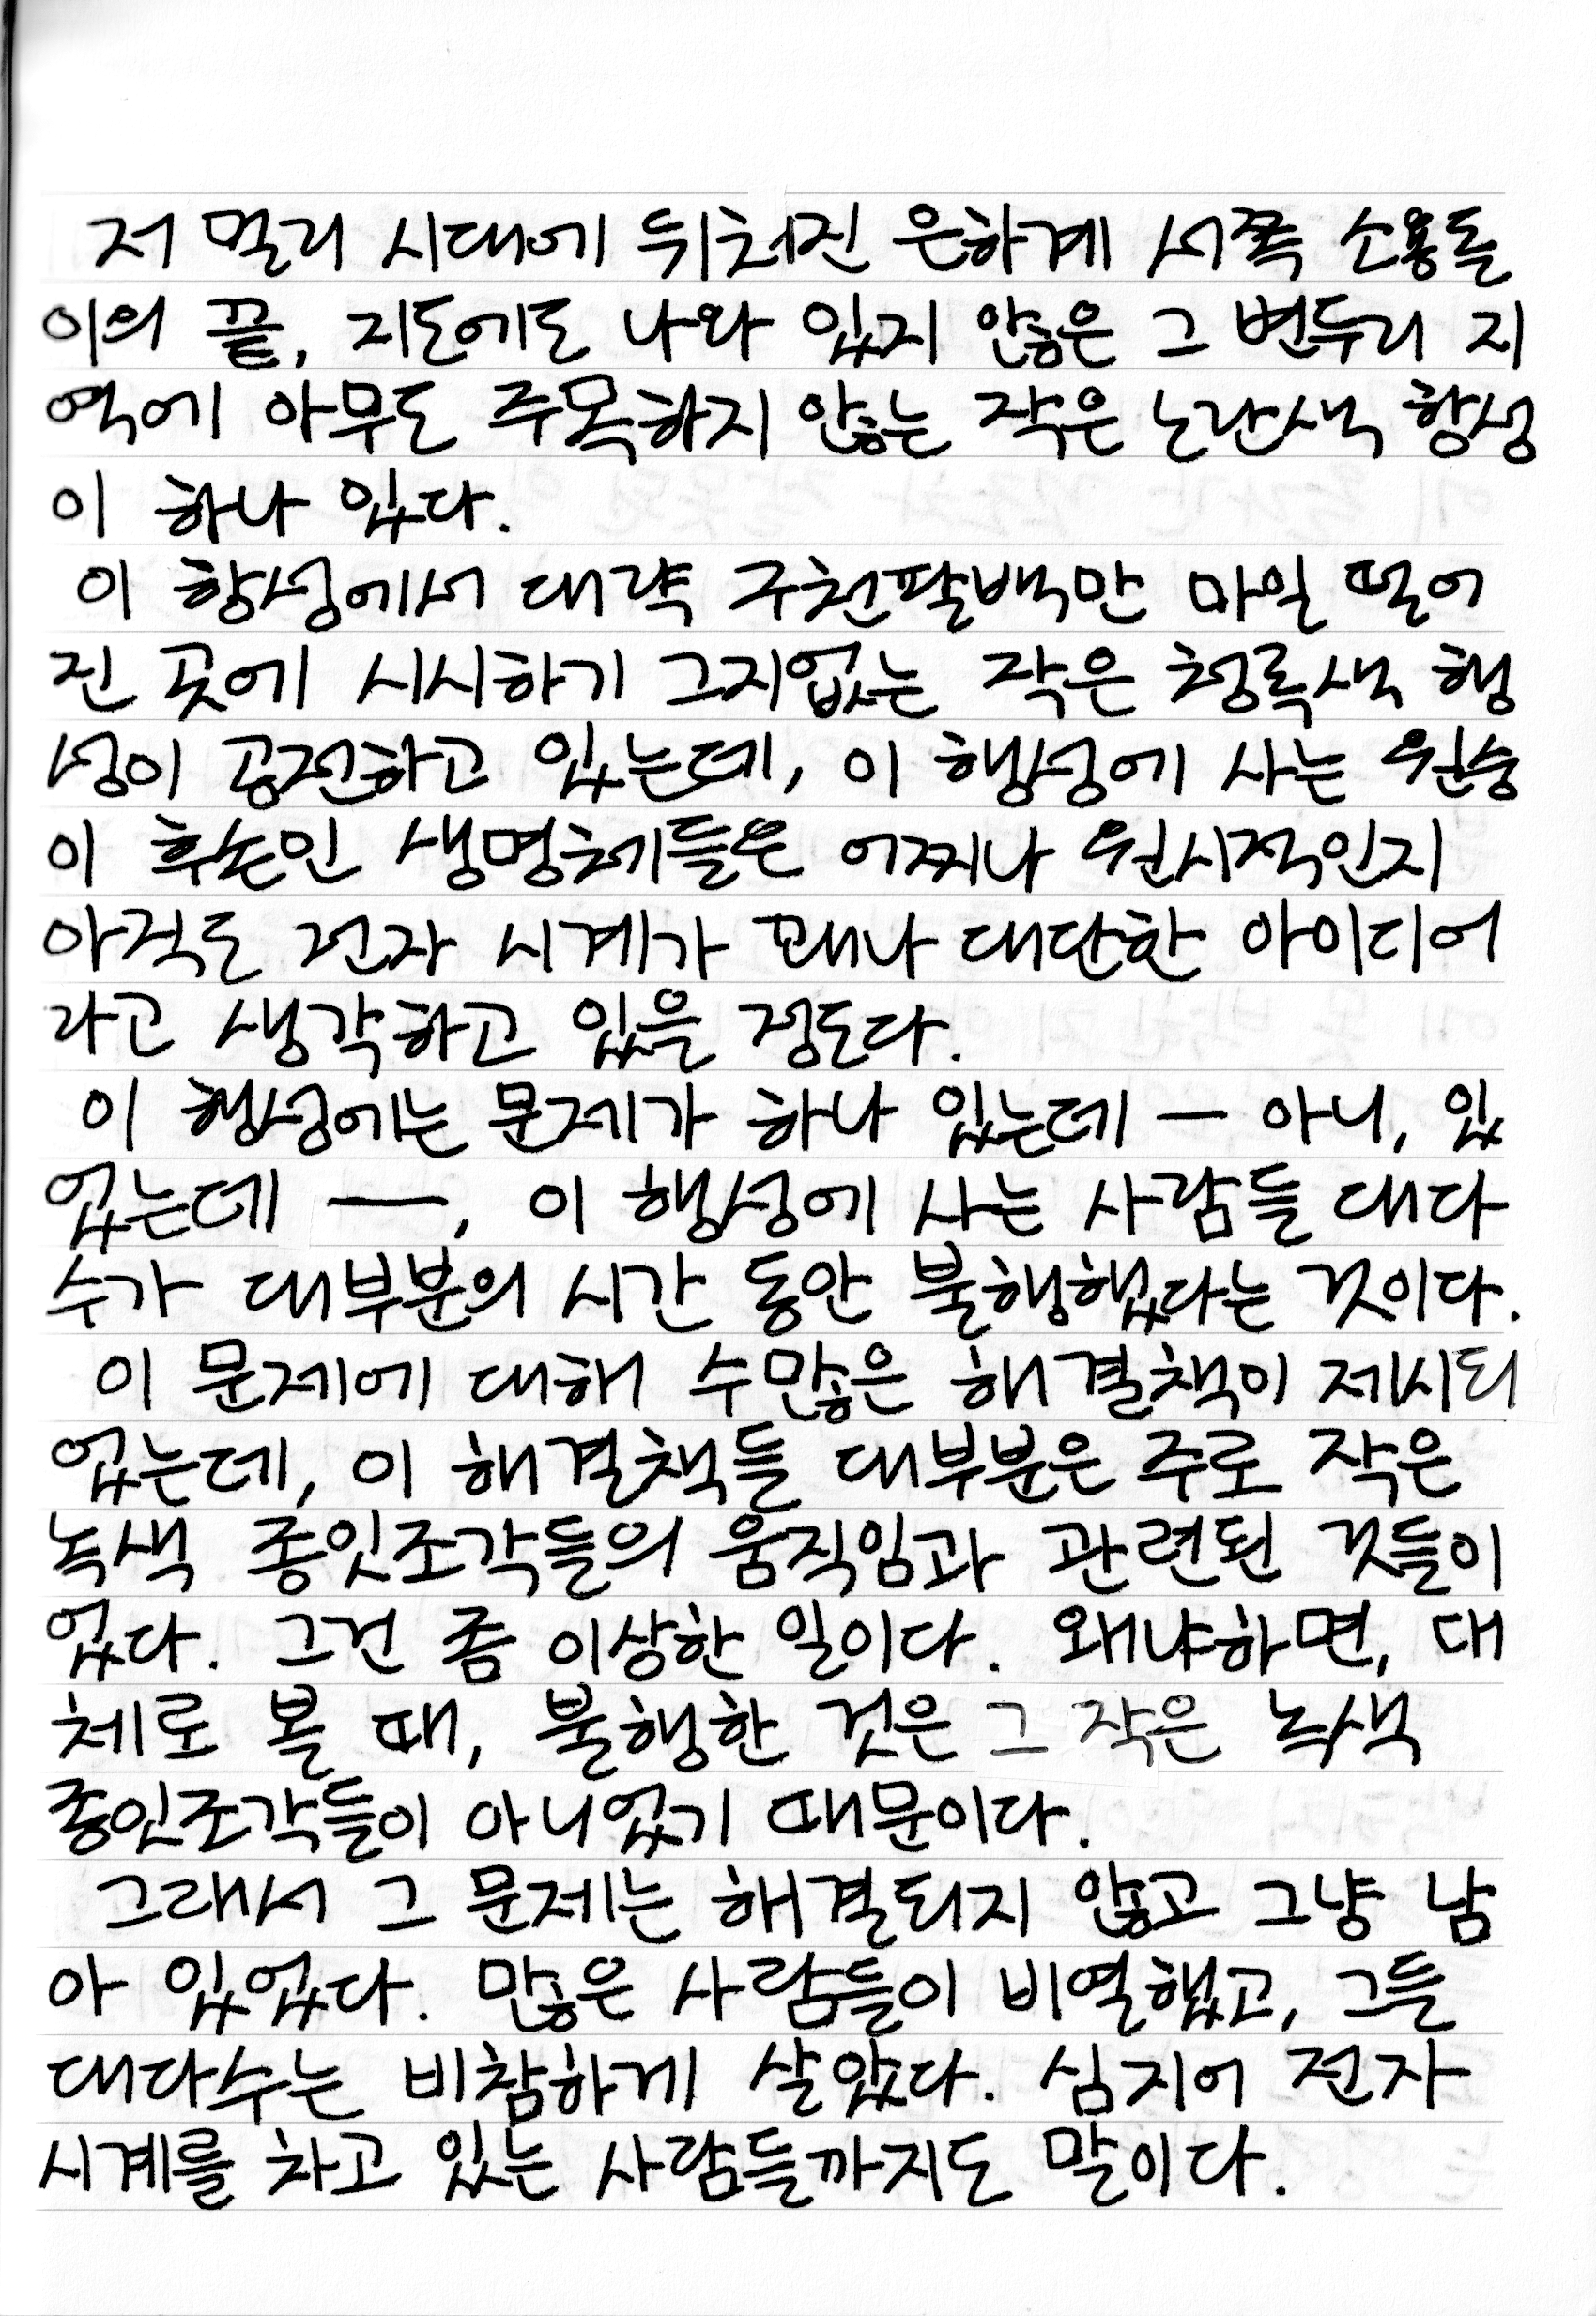 저 멀리 시대에 뒤처진 은하계 서쪽 소용돌
이의 끝, 지도에도 나와 있지 않은 그 변두리 지
역에 아무도 주목하지 않는 작은 노란색 항성
이 하나 있다.
이 항성에서 대략 구천팔백만 마일 떨어
진 곳에 시시하기 그지없는 작은 청록색 행
성이 공전하고 있는데, 이 행성에 사는 원숭
이 후손인 생명체들은 어찌나 원시적인지
아직도 전자 시계가 꽤나 대단한 아이디어
라고 생각하고 있을 정도다.
이 행성에는 문제가 하나 있는데 — 아니, 있
었는데 —, 이 행성에 사는 사람들 대다
수가 대부분의 시간 동안 불행했다는 것이다.
이 문제에 대해 수많은 해결책이 제시되
었는데, 이 해결책들 대부분은 주로 작은
녹색 종잇조각들의 움직임과 관련된 것들이
었다. 그건 좀 이상한 일이다. 왜냐하면, 대
체로 볼 때, 불행한 것은 그 작은 녹색
종잇조각들이 아니었기 때문이다.
그래서 그 문제는 해결되지 않고 그냥 남
아 있었다. 많은 사람들이 비열했고, 그들
대다수는 비참하게 살았다. 심지어 전자
시계를 차고 있는 사람들까지도 말이다.